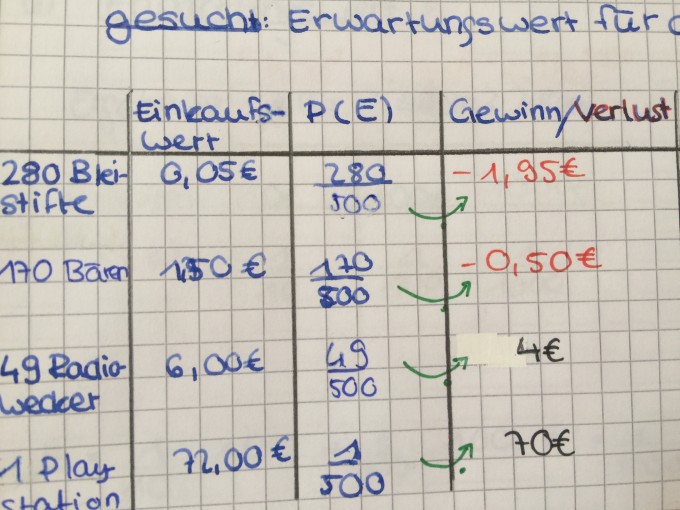 gesucht: Erwartungswert für d
Einkaufs- P(E) Gewinn/Verlust
wert
280 Blei- 0,05€ 280 - 1,95€
stifte 500
170 Bären 1,50€ 170 - 0,50€
500
49 Radio- 6,00€ 49 4€
wecker 500
1 Play- 72,00€ 1 70€
station 500